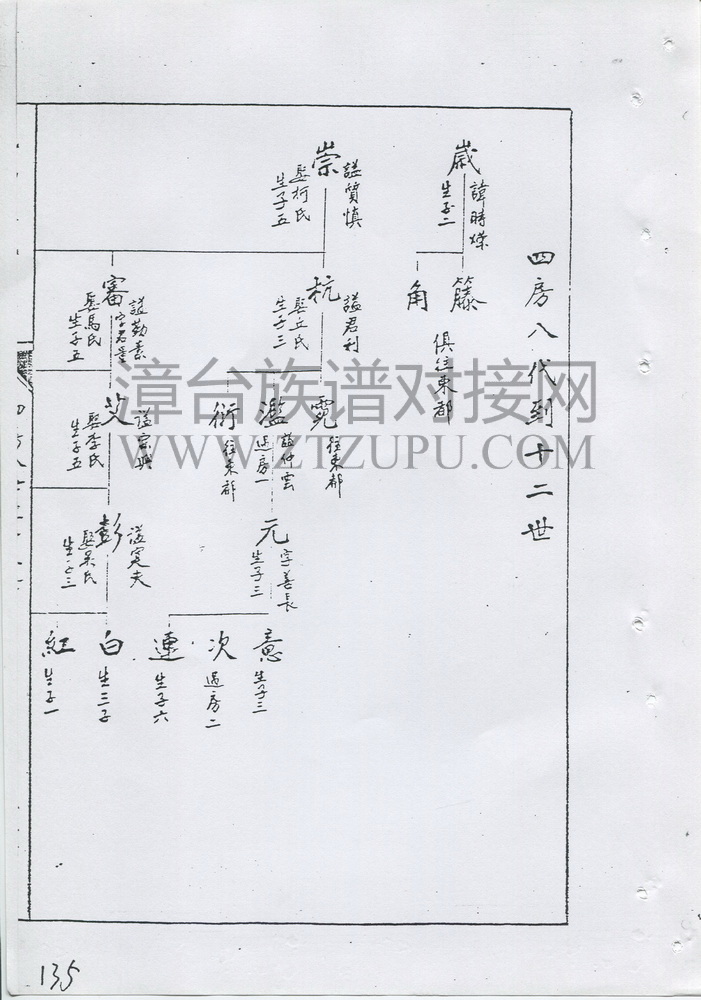 四房八代到十二世
歲
諱時燦
生子二
籐
角
俱往東都
崇
謚質慎
娶柯氏
生子五
杭
謚君利
娶丘氏
生子三
霓
往東都
濫
謚仲雲
過房一
衍
往東都
元
字善長
生子三
意
生子三
次
過房二
連
生子六
審
謚勤素
娶馬氏
生子五
艾
謚宗興
娶李氏
生子五
彭
謚寔夫
娶吳氏
生子三
白
生三子
紅
生子一
漳台族谱对接网
WWW.ZTZUPU.COM
135